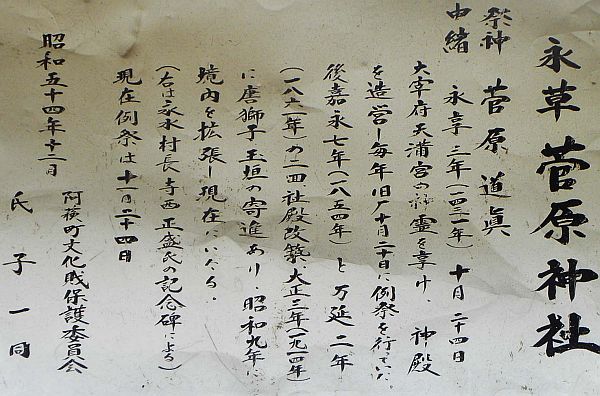 永草菅原神社
祭神 菅原道眞
由緒 永享三年(一四三一年)十月二十四日
太宰府天満宮の神霊を享け、神殿
を造営し毎年旧广十月二十日に例祭を行っていた
後嘉永七年(一八五四年)と万延二年
(一八六一年)の二回社殿改築大正三年(一九一四年)
に唐獅子玉垣の寄進あり、昭和九年に
境内を拡張し現在にいたる。
(右は永水村長寺西正盛氏の記念碑による)
現在例祭は十一月二十四日
昭和五十四年十二月
阿蘇町文化財保護委員会
氏子一同